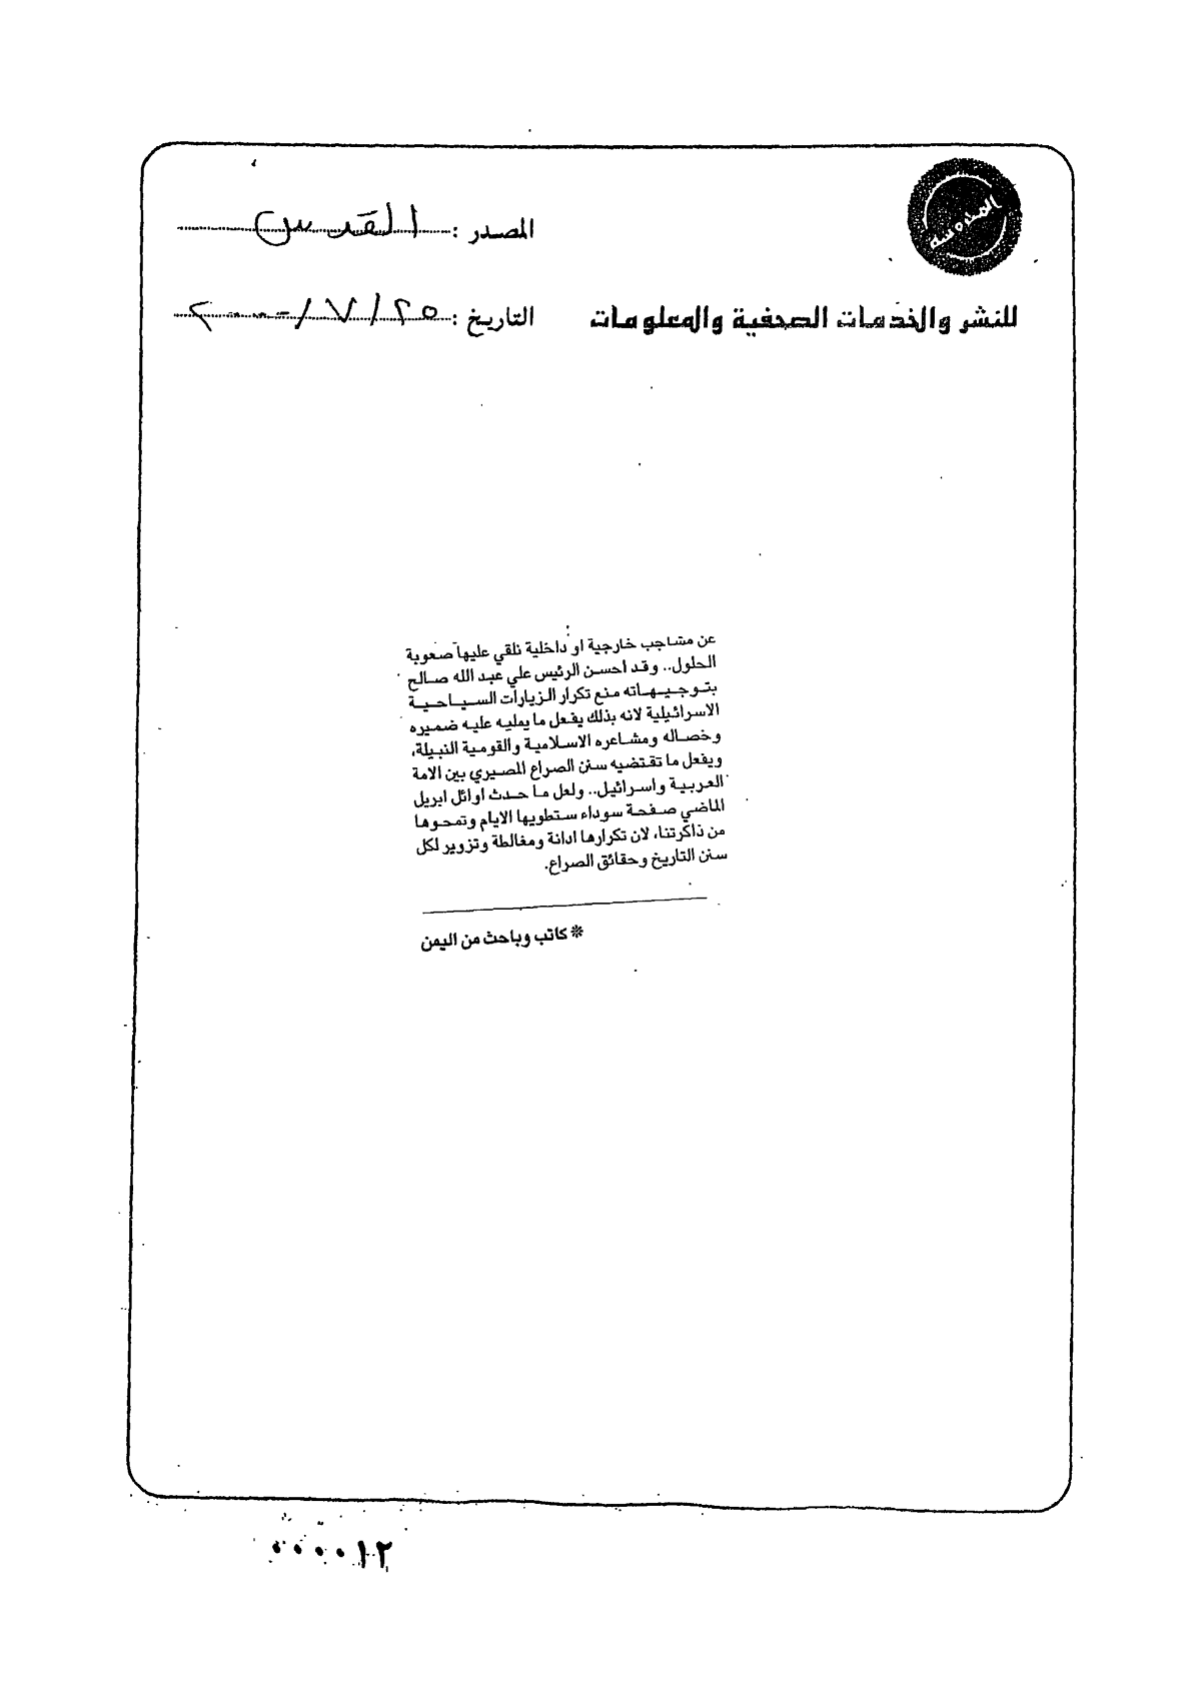 المصدر : القدس
للنشر والخدمات الصحفية والمعلومات
التاريخ : ٢٥ / ٧ / ٢٠٠٠
عن مشاجب خارجية او داخلية نلقي عليها صعوبة
الحلول.. وقد احسن الرئيس علي عبد الله صالح
بتوجيهاته منع تكرار الزيارات السياحية
الاسرائيلية لانه بذلك يفعل ما يمليه عليه ضميره
وخصاله ومشاعره الاسلامية والقومية النبيلة،
ويفعل ما تقتضيه سنن الصراع المصيري بين الامة
العربية واسرائيل.. ولعل ما حدث اوائل ابريل
الماضي صفحة سوداء ستطويها الايام وتمحوها
من ذاكرتنا، لان تكرارها ادانة ومغالطة وتزوير لكل
سنن التاريخ وحقائق الصراع.
* كاتب وباحث من اليمن
٠٠٠٠١٢